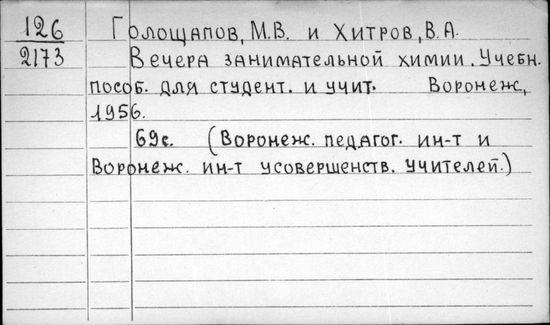 126
2173
Голощапов, М.В. и Хитров, В.А.
Вечера занимательной химии. Учебн.
пособ. для студент. и учит. Воронеж,
1956.
69с. (Воронеж. педагог. ин-т и
Воронеж. ин-т усовершенств. учителей.)